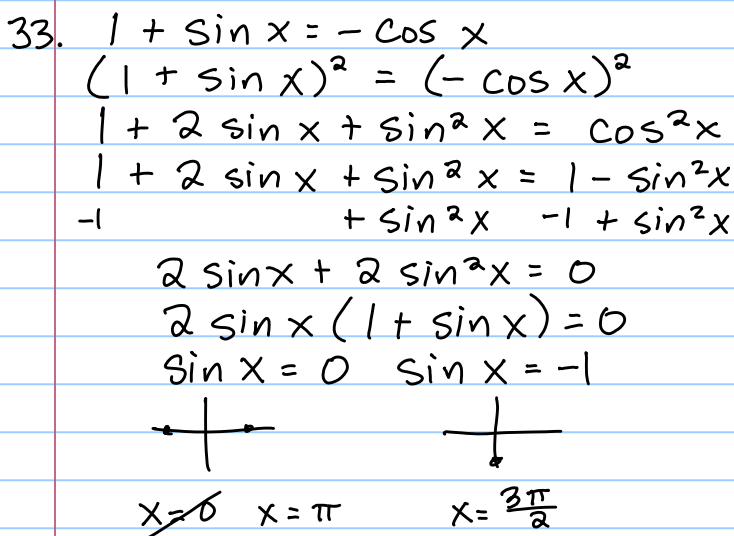 33. 1 + sin x = - cos x
(1 + sin x)² = (- cos x)²
1 + 2 sin x + sin² x = cos² x
1 + 2 sin x + sin² x = 1 - sin² x
-1 + sin² x -1 + sin² x
2 sin x + 2 sin² x = 0
2 sin x (1 + sin x) = 0
sin x = 0 sin x = -1
x = 0 x = π x = 3π/2